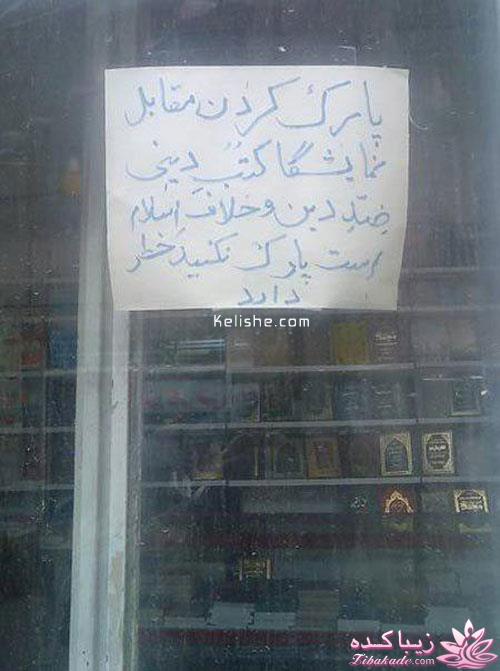 پارک کردن مقابل
نمایشگا کتبِ دینی
ضدّ دین و خلاف اسلام
است پارک نکنید خطر
دارد
Kelishe.com
زیباکده
Zibakade.com